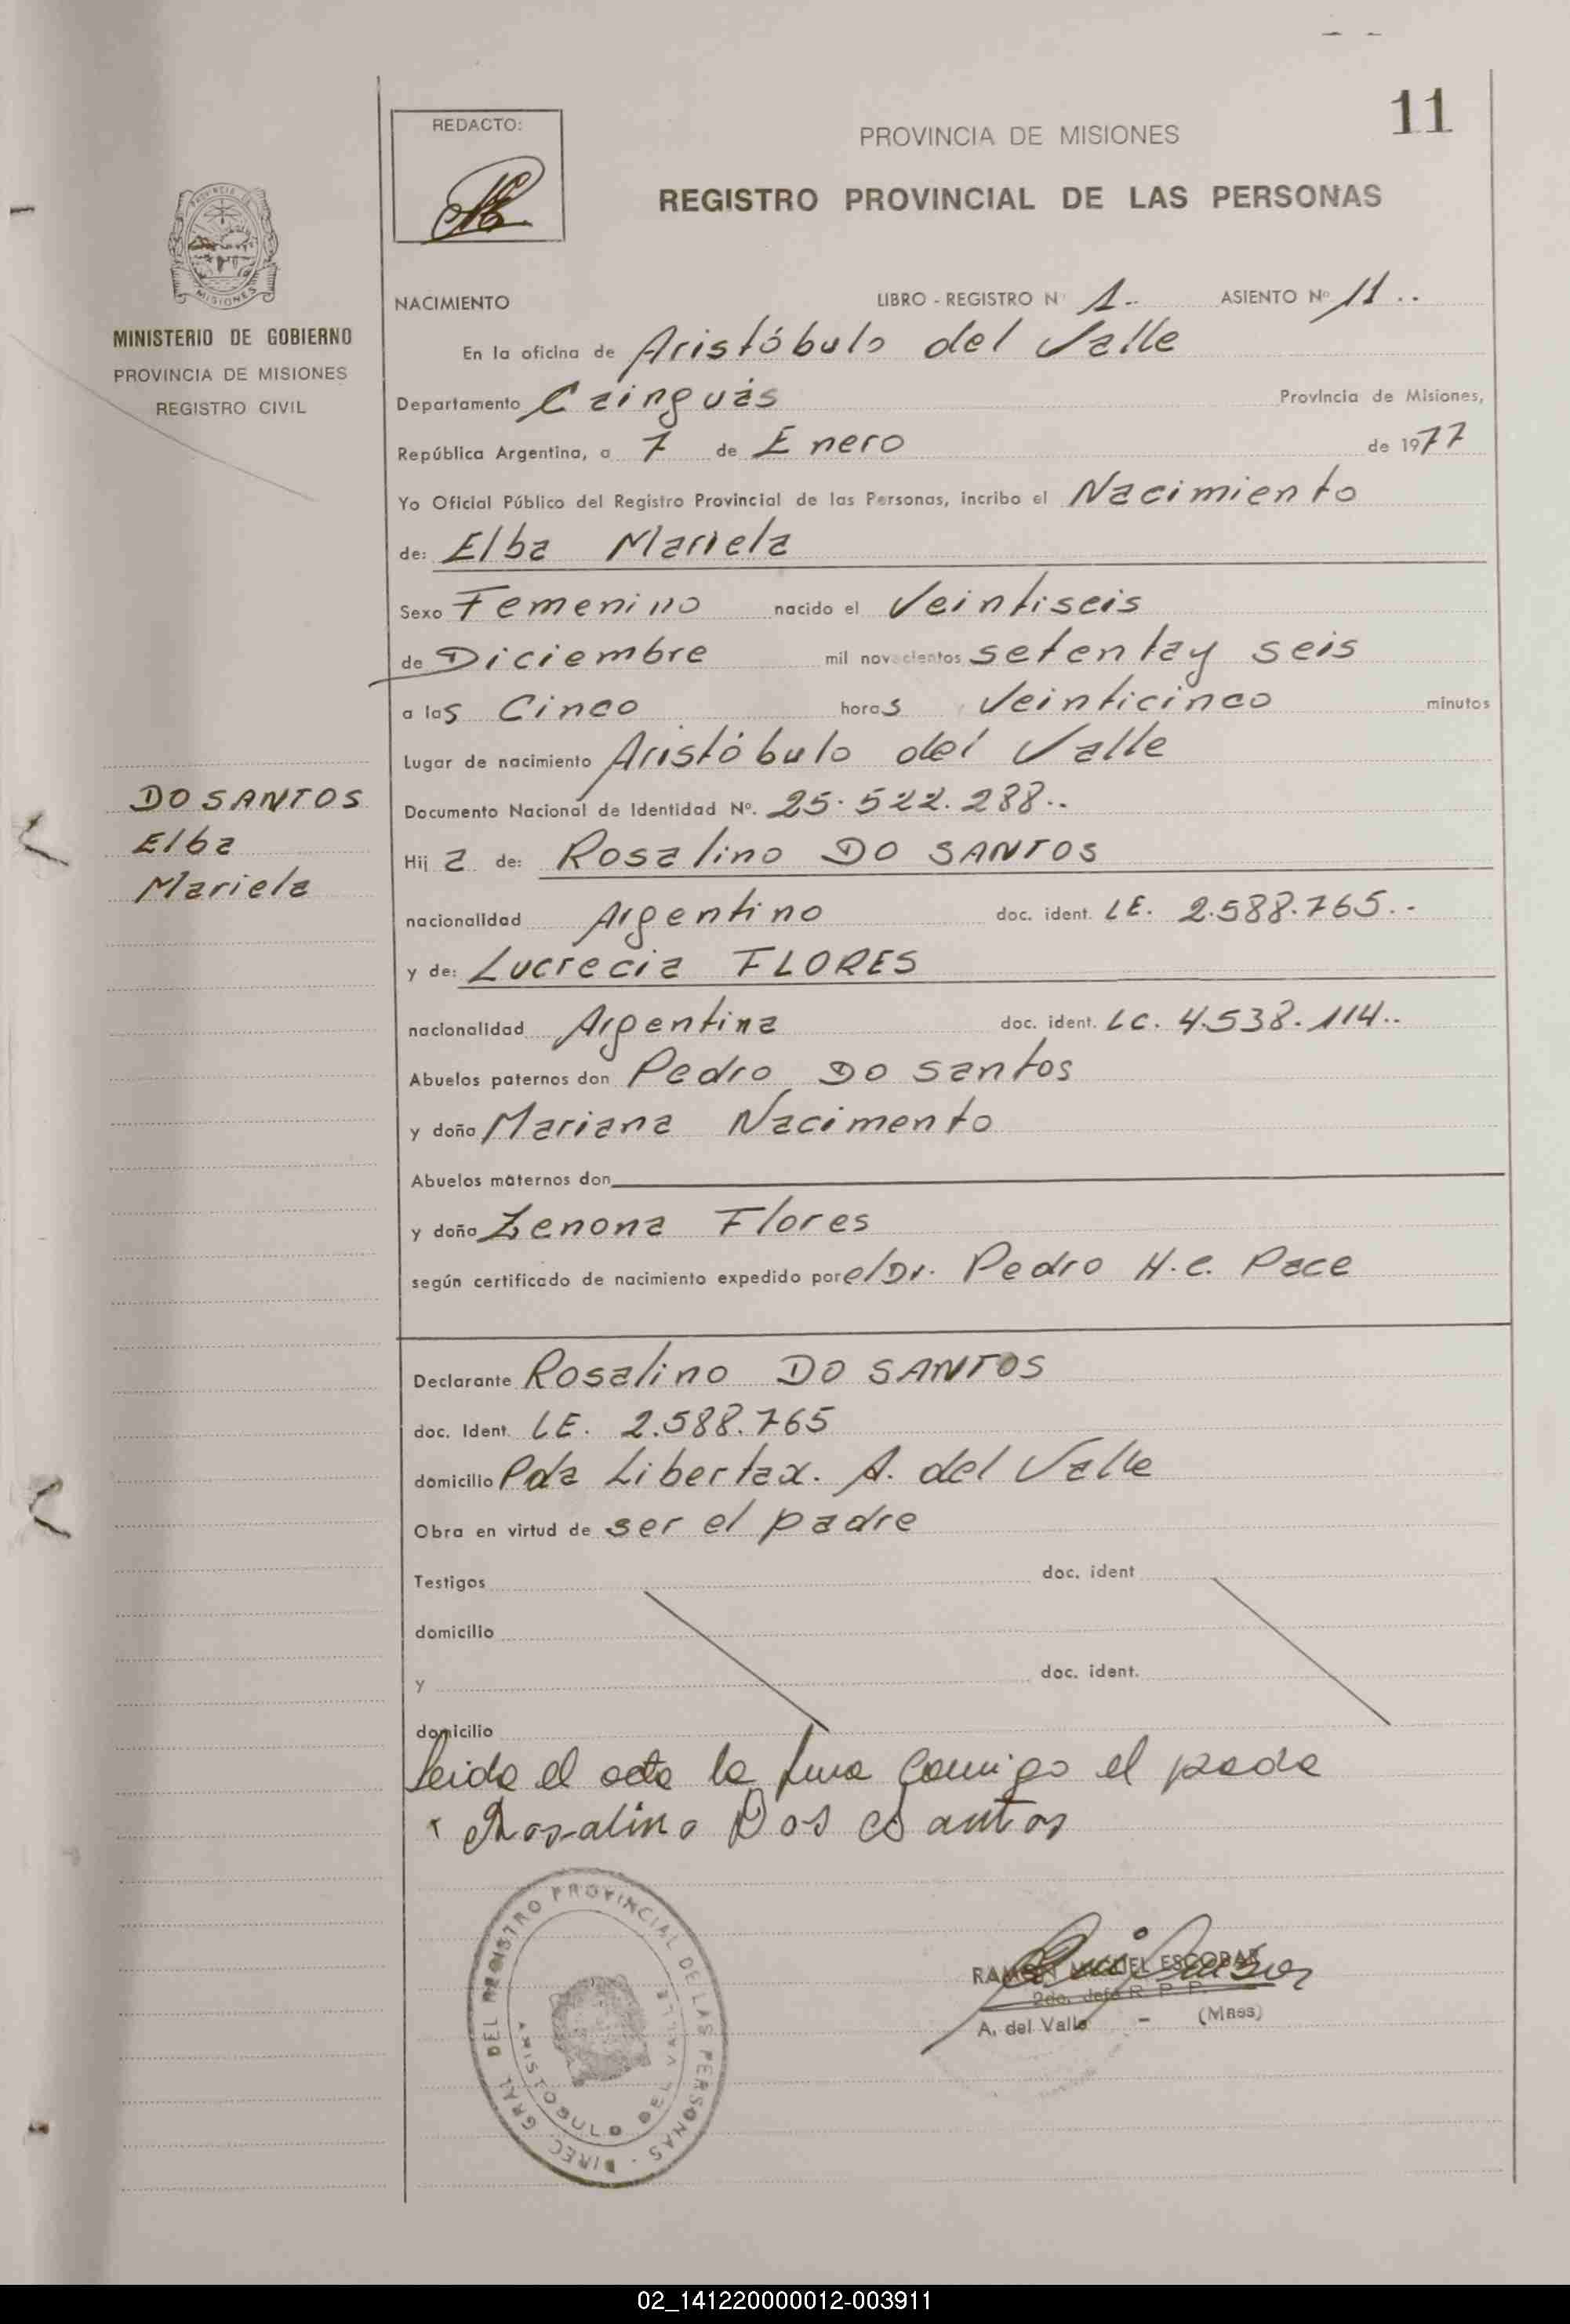 11
REDACTO:
PROVINCIA DE MISIONES
REGISTRO PROVINCIAL DE LAS PERSONAS
MISIONES
MINISTERIO DE GOBIERNO
PROVINCIA DE MISIONES
REGISTRO CIVIL
NACIMIENTO LIBRO - REGISTRO N° 1.. ASIENTO N° 11..
En la oficina de Aristóbulo del Valle
Departamento Cainguás Provincia de Misiones,
República Argentina, a 7 de Enero de 1977
Yo Oficial Público del Registro Provincial de las Personas, incribo el Nacimiento
de: Elba Mariela
Sexo Femenino nacido el Veintiseis
de Diciembre mil novecientos setenta y seis
a las Cinco horas Veinticinco minutos
Lugar de nacimiento Aristóbulo del Valle
Documento Nacional de Identidad N°. 25.522.288..
Hija de: Rosalino DO SANTOS
nacionalidad Argentino doc. ident. LE. 2.588.765..
y de: Lucrecia FLORES
nacionalidad Argentina doc. ident. LC. 4.538.114..
Abuelos paternos don Pedro DO Santos
y doña Mariana Nacimento
Abuelos maternos don
y doña Zenona Flores
según certificado de nacimiento expedido por el Dr. Pedro H.C. Pace
DO SANTOS
Elba
Mariela
Declarante Rosalino DO SANTOS
doc. Ident. LE. 2.588.765
domicilio Pda Libertax. A. del Valle
Obra en virtud de ser el padre
Testigos doc. ident
domicilio
y doc. ident.
domicilio
Leida el acta la firma conmigo el padre
Rosalino Dos Santos
DIREC. GRAL DEL REGISTRO PROVINCIAL DE LAS PERSONAS -
ARISTOBULO DEL VALLE
RAMON MIGUEL ESCOBAR
2do. Jefe R. P. P.
A. del Valle - (Mnes)
02_141220000012-003911